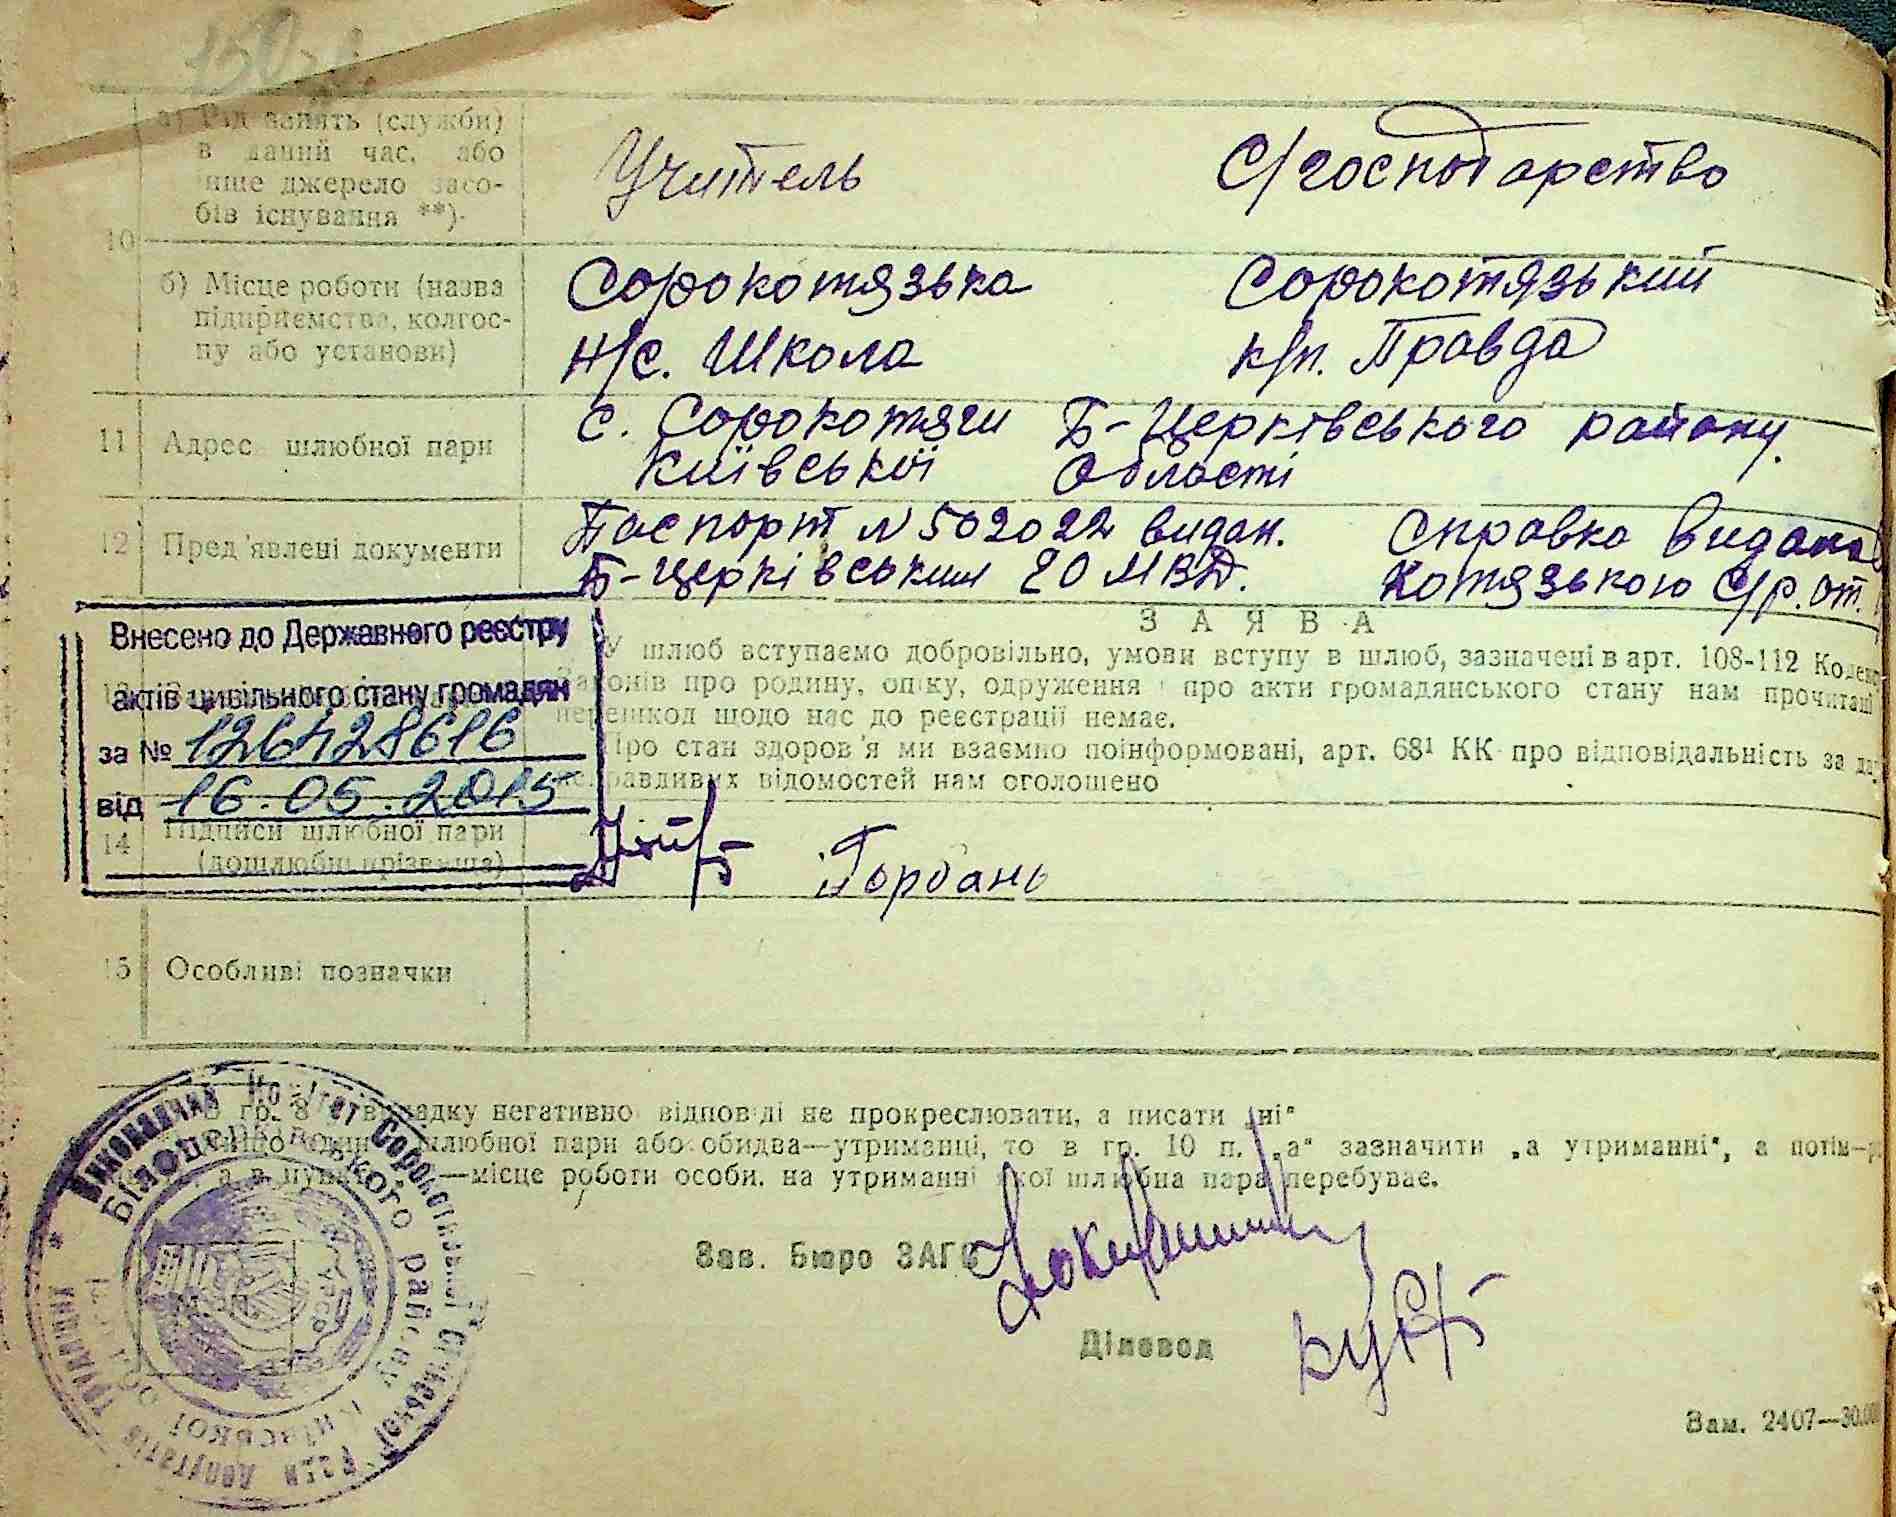 а) Рід занять (служби)
в даний час, або
інше джерело засо-
бів існування **)-
Учитель
С/господарство
10
б) Місце роботи (назва
підприємства, колгос-
пу або установи)
Сорокотязька
Н/с. Школа
Сорокотязький
к/п. Правда
11
Адрес шлюбної пари
с. Сорокотяги Б-Церківського району.
Київської Області
12
Пред'явлені документи
Паспорт N 502022 видан.
Б-Церківським ГО МВД.
Справка видана
Котязькою С/р. от.
Внесено до Державного реєстру
актів цивільного стану громадян
за № 126428616
від 16.05.2015
ЗАЯВА
У шлюб вступаємо добровільно, умови вступу в шлюб, зазначені в арт. 108-112 Кодекс
законів про родину, опіку, одруження і про акти громадянського стану нам прочитані
перешкод щодо нас до реєстрації немає.
Про стан здоров'я ми взаємно поінформовані, арт. 68¹ КК про відповідальність за да
неправдивих відомостей нам оголошено
14
Підписи шлюбної пари
(дошлюбні прізвища)
Горбань
15
Особливі позначки
В гр. 8 в випадку негативної відповіді не прокреслювати, а писати „ні"
шлюбної пари або обидва—утриманці, то в гр. 10 п. „а" зазначити „а утриманні", а потім
—місце роботи особи, на утриманні якої шлюбна пара перебуває.
Виконавчий Комітет Сорокотязької Сільської Ради депутатів трудящих
Білоцерківського району Київської області
УРСР
Зав. Бюро ЗАГС
Діловод
Зам. 2407—30.000